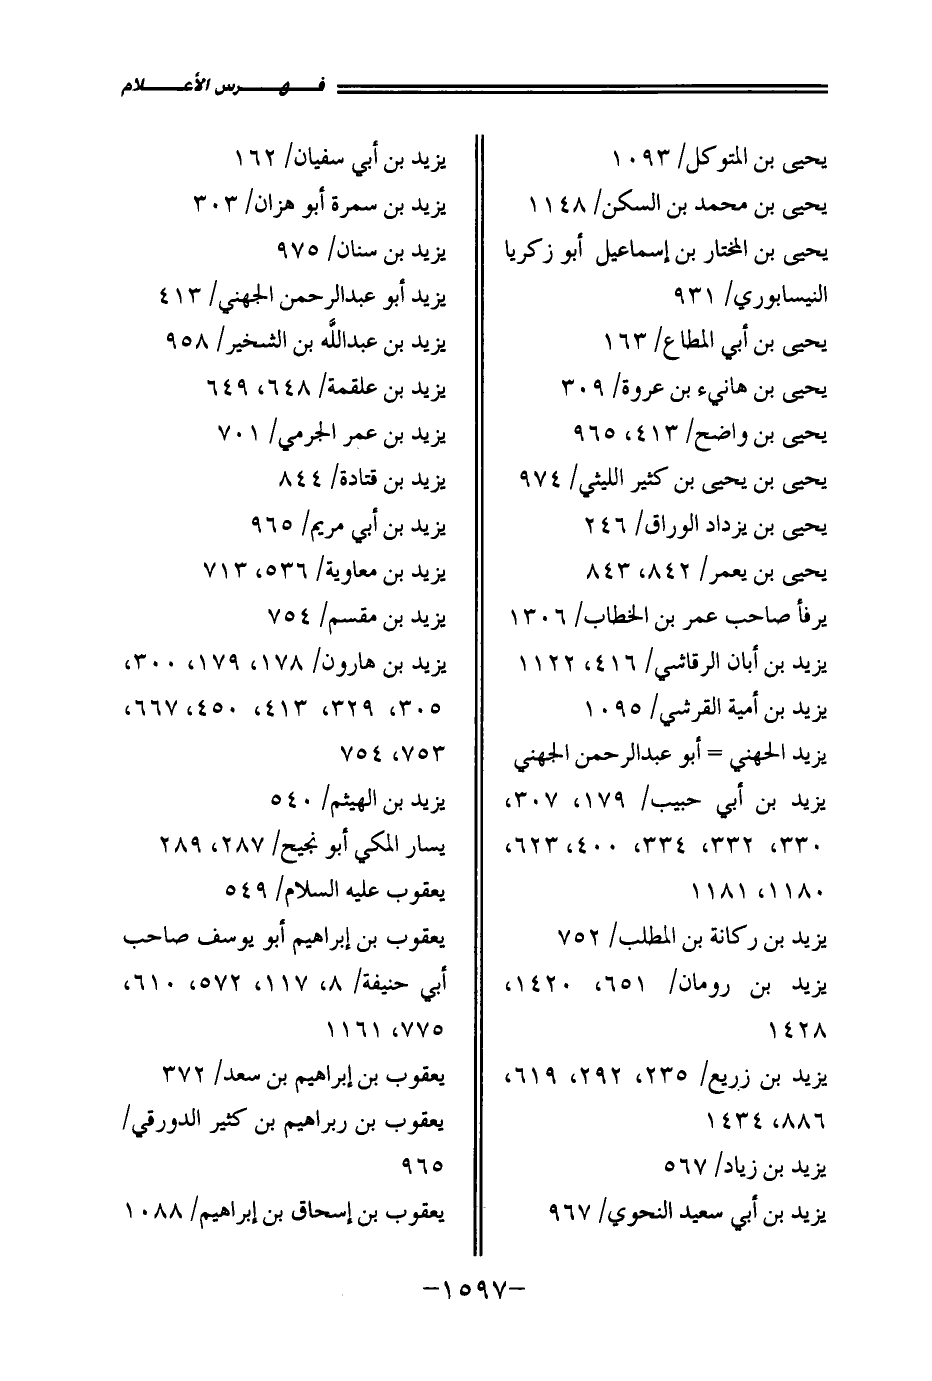 فهرس الأعلام
يحيى بن المتوكل/ ١٠٩٣
يحيى بن محمد بن السكن/ ١١٤٨
يحيى بن المختار بن إسماعيل أبو زكريا
النيسابوري/ ٩٣١
يحيى بن أبي المطاع/ ١٦٣
يحيى بن هانيء بن عروة/ ٣٠٩
يحيى بن واضح/ ٤١٣، ٩٦٥
يحيى بن يحيى بن كثير الليثي/ ٩٧٤
يحيى بن يزداد الوراق/ ٢٤٦
يحيى بن يعمر/ ٨٤٢، ٨٤٣
يرفأ صاحب عمر بن الخطاب/ ١٣٠٦
يزيد بن أبان الرقاشي/ ٤١٦، ١١٢٢
يزيد بن أمية القرشي/ ١٠٩٥
يزيد الجهني = أبو عبدالرحمن الجهني
يزيد بن أبي حبيب/ ١٧٩، ٣٠٧،
٣٣٠، ٣٣٢، ٣٣٤، ٤٠٠، ٦٢٣،
١١٨٠، ١١٨١
يزيد بن ركانة بن المطلب/ ٧٥٢
يزيد بن رومان/ ٦٥١، ١٤٢٠،
١٤٢٨
يزيد بن زريع/ ٢٣٥، ٢٩٢، ٦١٩،
٨٨٦، ١٤٣٤
يزيد بن زياد/ ٥٦٧
يزيد بن أبي سعيد النحوي/ ٩٦٧
يزيد بن أبي سفيان/ ١٦٢
يزيد بن سمرة أبو هزان/ ٣٠٣
يزيد بن سنان/ ٩٧٥
يزيد أبو عبدالرحمن الجهني/ ٤١٣
يزيد بن عبداللَّه بن الشخير/ ٩٥٨
يزيد بن علقمة/ ٦٤٨، ٦٤٩
يزيد بن عمر الجرمي/ ٧٠١
يزيد بن قتادة/ ٨٤٤
يزيد بن أبي مريم/ ٩٦٥
يزيد بن معاوية/ ٥٣٦، ٧١٣
يزيد بن مقسم/ ٧٥٤
يزيد بن هارون/ ١٧٨، ١٧٩، ٣٠٠،
٣٠٥، ٣٢٩، ٤١٣، ٤٥٠، ٦٦٧،
٧٥٣، ٧٥٤
يزيد بن الهيثم/ ٥٤٠
يسار المكي أبو نجيح/ ٢٨٧، ٢٨٩
يعقوب عليه السلام/ ٥٤٩
يعقوب بن إبراهيم أبو يوسف صاحب
أبي حنيفة/ ٨، ١١٧، ٥٧٢، ٦١٠،
٧٧٥، ١١٦١
يعقوب بن إبراهيم بن سعد/ ٣٧٢
يعقوب بن ربراهيم بن كثير الدورقي/
٩٦٥
يعقوب بن إسحاق بن إبراهيم/ ١٠٨٨
-١٥٩٧-